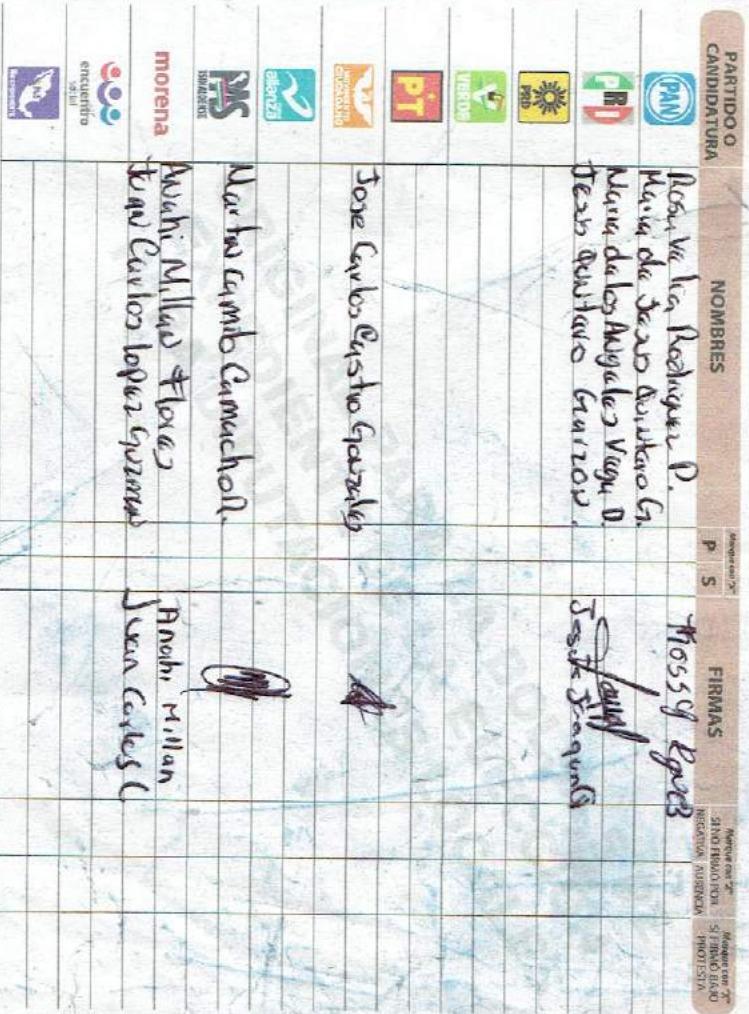 PARTIDO O CANDIDATURA
NOMBRES
Marque con "X"
P S
FIRMAS
Marque con "X" SI NO FIRMÓ POR
NEGATIVA AUSENCIA
Marque con "X" SI FIRMÓ BAJO PROTESTA
PAN
Rodriguez P.
Maria de Jesus Quintero G.
PRI
Maria de los Angeles Vega D.
Jesus Quintero Garzon.
PRD
VERDE
PT
MOVIMIENTO CIUDADANO
Jose Carlos Castro Gonzalez
alianza
PAS
SINALOENSE
Martin Camilo Camacho R.
morena
Anahi Millan Flores
Anahi Millan
Juan Carlos Lopez Guzman
Juan Carlos C
encuentro
social